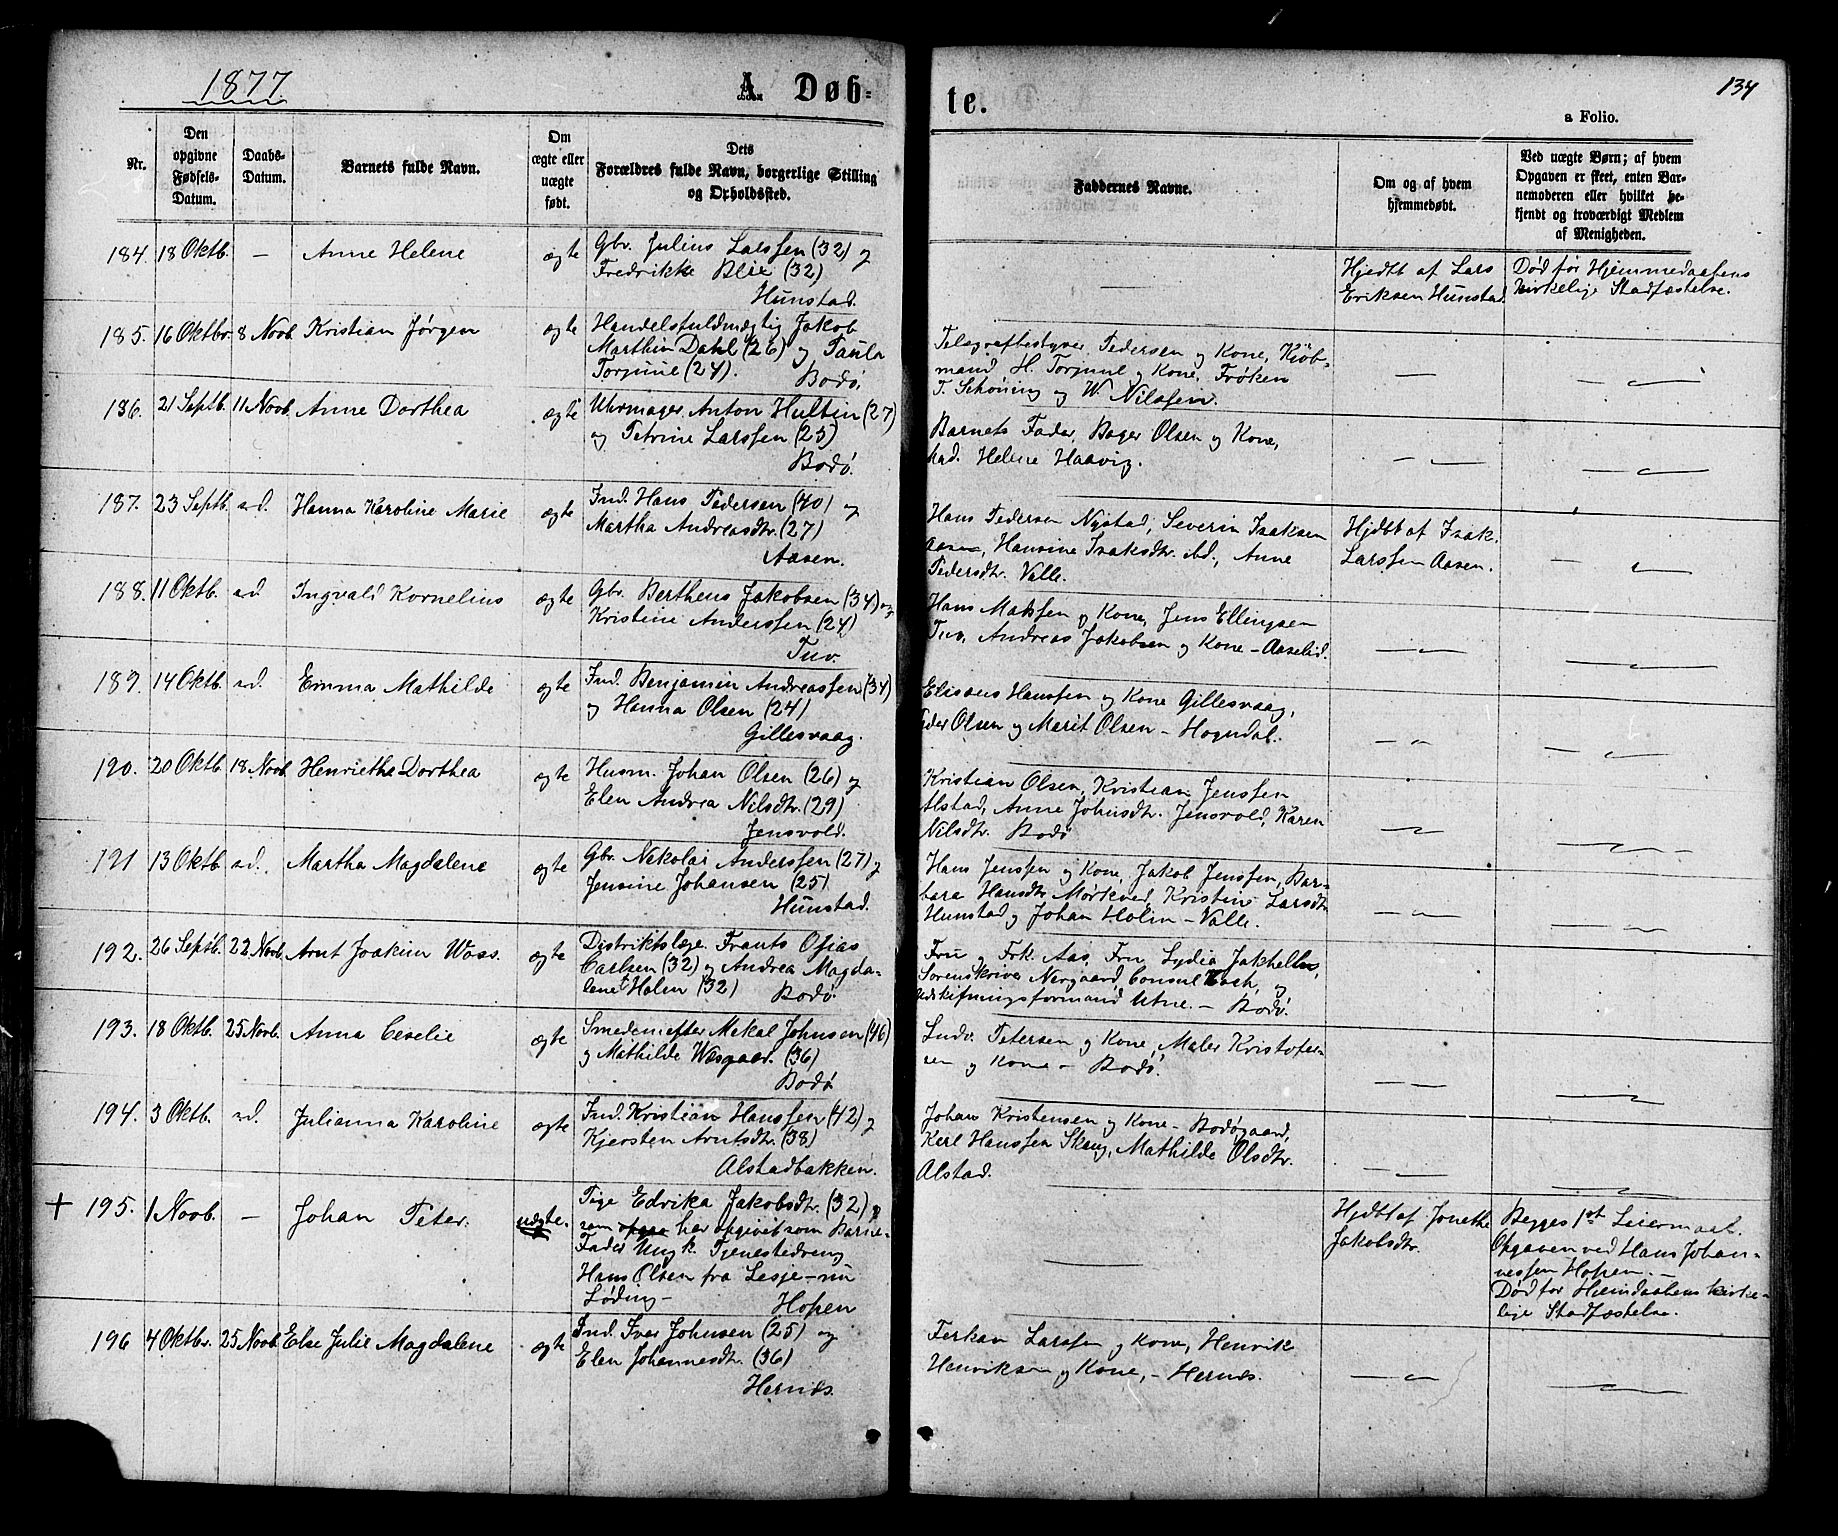 1877.
A. Døb-
te.
134
a Folio.
Nr.
Den opgivne Fødsels-Datum.
Daabs-Datum.
Barnets fulde Navn.
Om ægte eller uægte født.
Dets Forældres fulde Navn, borgerlige Stilling og Opholdssted.
Faddernes Navne.
Om og af hvem hjemmedøbt.
Ved uægte Børn; af hvem Opgaven er skeet, enten Barnemoderen eller hvilket bekjendt og troværdigt Medlem af Menigheden.
184. 18 Oktb. — Anne Helene ægte Gbr. Julius Larssen (32) og
Fredrikke Blix (32)
Hunstad.
—
Hjedbt af Lars
Eriksen Hunstad.
Død før Hjemmedaabens
kirkelige Stadfæstelse.
185. 16 Oktbr. 8 Novb. Kristian Jørgen ægte Handelsfuldmægtig Jakob
Marthin Dahl (26) og Paula
Torjuul (24). Bodø.
Telegrafbestyrer Pedersen og Kone, Kjøb-
mand H. Torjuul og Kone, Frøken
T. Schøning og W. Nilssen.
186. 21 Septb. 11 Novb. Anne Dorthea ægte Uhrmager Anton Hultin (27)
og Petrine Larssen (25)
Bodø.
Barnets Fader, Bager Olsen og Kone,
Mad. Helene Haavig.
187. 23 Septb. ad. Hanna Karoline Marie ægte Ind. Hans Pedersen (40) og
Martha Andreasdtr. (27)
Aasen.
Hans Pedersen Nystad, Severin Isaksen
Aasen, Hansine Isaksdtr. ibd., Anne
Pedersdtr. Valle.
Hjdbt af Isak
Larssen Aasen.
188. 11 Oktb. ad. Ingvald Kornelius ægte Gbr. Bertheus Jakobsen (34) og
Kristine Anderssen (24)
Tuv.
Hans Matssen og Kone, Jens Ellingsen
Tuv, Andreas Jakobsen og Kone – Aaselid.
189. 14 Oktb. ad. Emma Mathilde ægte Ind. Benjamin Andreassen (34)
og Hanna Olsen (24)
Gillesvaag.
Elisæus Hanssen og Kone Gillesvaag,
Peder Olsen og Marit Olsen – Hogndal.
190. 20 Oktb. 18 Novb. Henrietha Dorthea ægte Husm. Johan Olsen (26) og
Elen Andrea Nilsdtr. (29)
Jensvold.
Kristian Olsen, Kristian Jenssen
Alstad, Anne Johnsdtr. Jensvold, Karen
Nilsdtr. Bodø
191 13 Oktb. ad. Martha Magdalene ægte Gbr. Nikolai Anderssen (27) og
Jensine Johansen (25)
Hunstad.
Hans Jenssen og Kone, Jakob Jenssen, Bar-
bara Hansdtr. Mørkved, Kristine Larsdtr.
Hunstad og Johan Holm – Valle.
192. 26 Septb. 22 Novb. Arnt Joakim Waas. ægte Distriktslæge Frants Osias
Carlsen (32) og Andrea Magda-
lene Holm (32) Bodø.
Fru og Frk. Aas, Fru Lydia Jakhelln,
Sorenskriver Nergaard, Consul Koch, og
Udskiftningsformand Utne. – Bodø.
193. 18 Oktb. 25 Novb. Anna Ceselie ægte Smedemester Mekal Johnsen (46)
og Mathilde Wægaard. (36)
Bodø
Ludv. Petersen og Kone, Maler Kristofer-
sen og Kone – Bodø.
194. 3 Oktb. ad. Julianna Karoline ægte Ind. Kristian Hanssen (42) og
Kjersten Arntsdtr. (38)
Alstadbakken.
Johan Kristensen og Kone – Bodøgaard,
Karl Hanssen Skaug, Mathilde Olsdtr.
Alstad.
+ 195. 1 Novb. — Johan Peter. uægte. Pige Edvika Jakobsdtr. (32)
som har opgivet som Barne-
Fader Ungk. Tjenestedreng
Hans Olsen fra Lesje – nu
Løding – Hopen
Hjdbt af Jonetha
Jakobsdtr.
Begges 1st Leiermaal.
Opgaven ved Hans Johan-
nessen Hopen. –
Død før Hjemdaabens kirke-
lige Stadfæstelse.
196 4 Oktbr. 25 Novb. Else Julie Magdalene ægte Ind. Iver Johnsen (25) og
Elen Johannesdtr. (36)
Hernes.
Ferkan Larssen og Kone, Henrik
Henriksen og Kone, – Hernes.